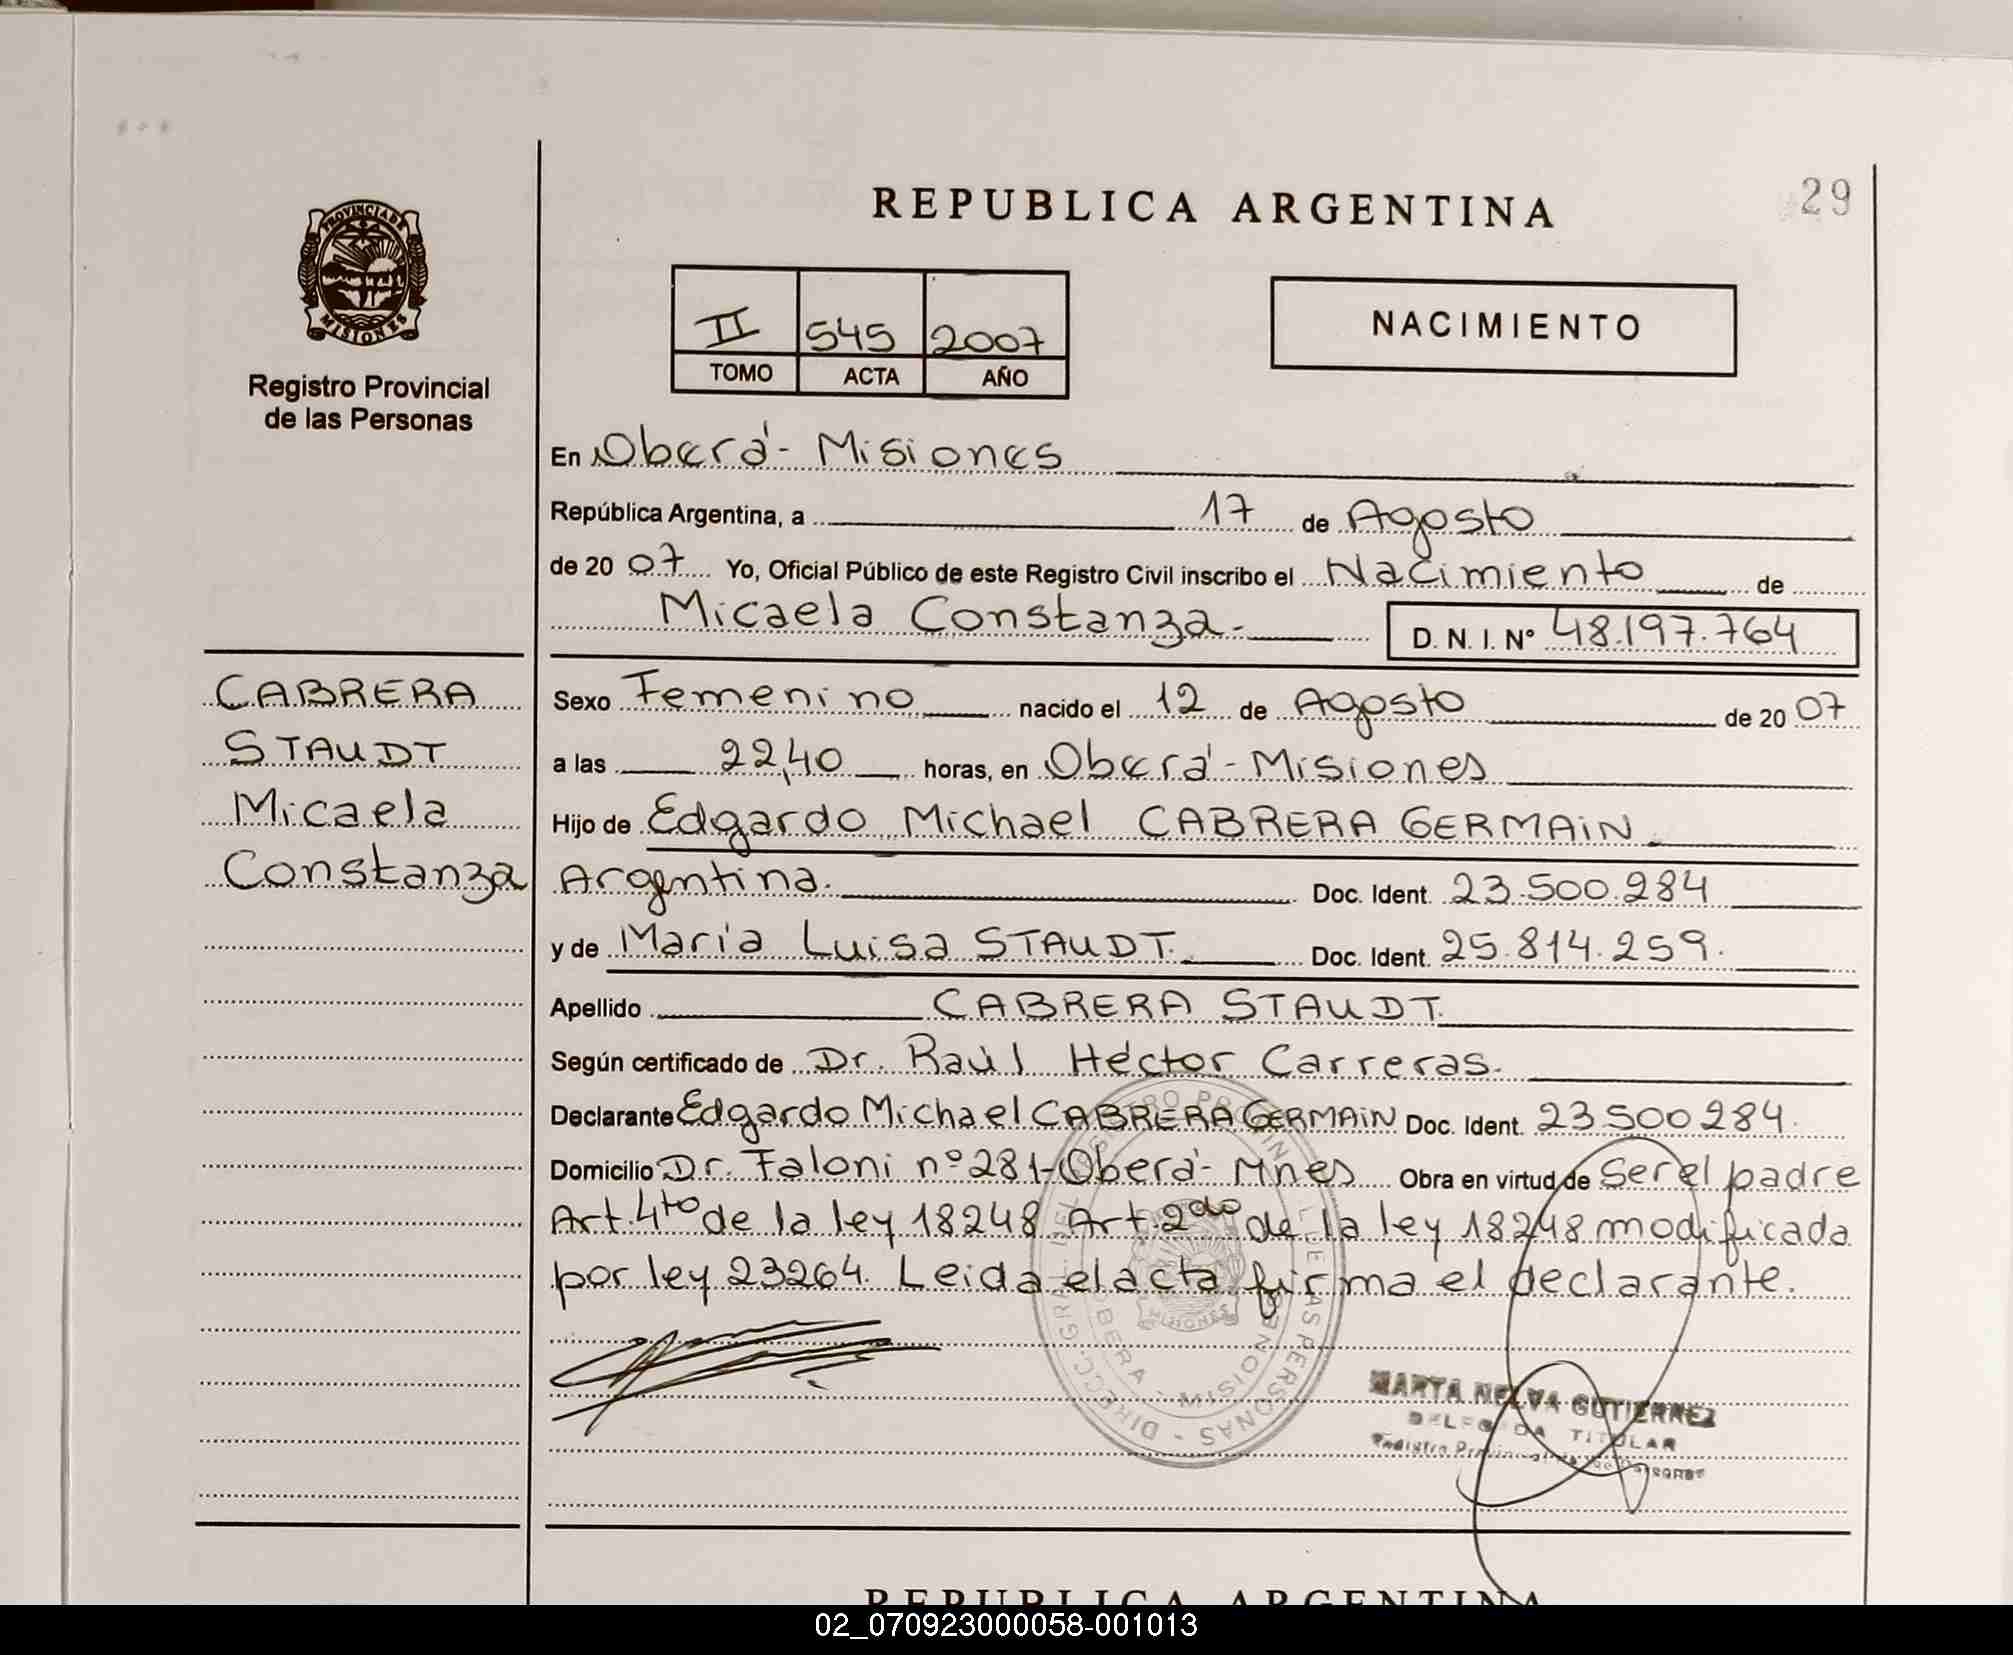 REPUBLICA ARGENTINA
29
PROVINCIA DE
MISIONES
Registro Provincial
de las Personas
II 545 2007
TOMO ACTA AÑO
NACIMIENTO
En Oberá - Misiones
República Argentina, a 17 de Agosto
de 20 07 Yo, Oficial Público de este Registro Civil inscribo el Nacimiento de
Micaela Constanza.- D. N. I. Nº 48.197.764
CABRERA
STAUDT
Micaela
Constanza
Sexo Femenino nacido el 12 de Agosto de 20 07
a las 22,40 horas, en Oberá - Misiones
Hijo de Edgardo Michael CABRERA GERMAIN
Argentina. Doc. Ident. 23.500.284
y de María Luisa STAUDT. Doc. Ident. 25.814.259.
Apellido CABRERA STAUDT.
Según certificado de Dr. Raúl Héctor Carreras.
Declarante Edgardo Michael CABRERA GERMAIN Doc. Ident. 23500284.
Domicilio Dr. Faloni nº 281-Oberá- Mnes Obra en virtud de Ser el padre
Art. 4to de la ley 18248 Art. 2do de la ley 18248 modificada
por ley 23264. Leida el acta firma el declarante.
MARTA NELVA GUTIERREZ
DELEGADA TITULAR
REPUBLICA ARGENTINA
02_070923000058-001013